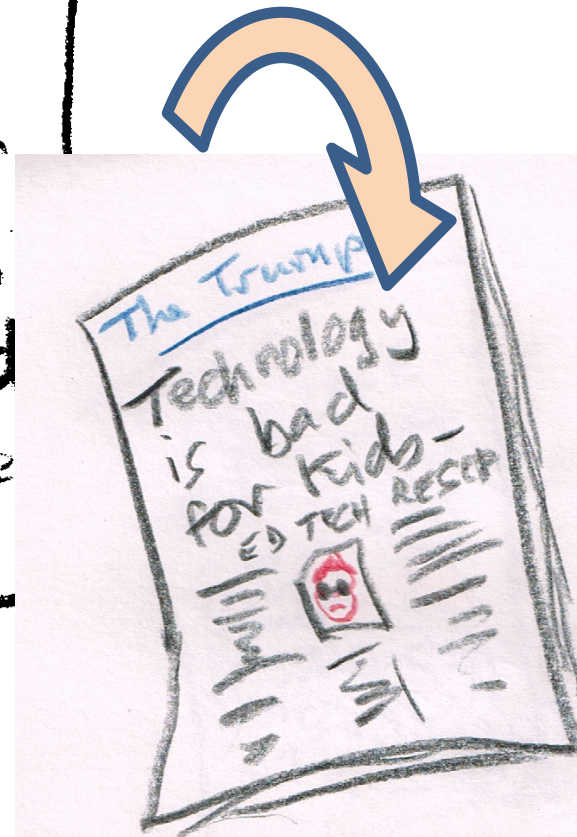 The Trump
Technology
is bad
for Kids-
ED TECH